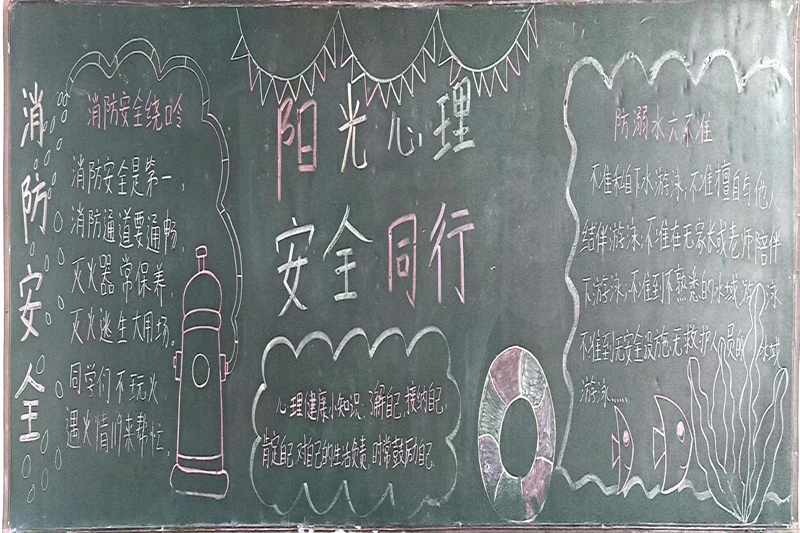 消防安全
消防安全绕口令
消防安全是第一，
消防通道要通畅，
灭火器常保养，
灭火逃生大用场。
同学们不玩火，
遇火情119来帮忙。
阳光心理
安全同行
心理健康小知识：了解自己，接纳自己，
肯定自己，对自己的生活负责，时常鼓励自己
防溺水六不准
不准私自下水游泳，不准擅自与他人
结伴游泳，不准在无家长或老师陪伴
下游泳，不准到不熟悉的水域游泳
不准到无安全设施、无救护人员的水域
游泳……